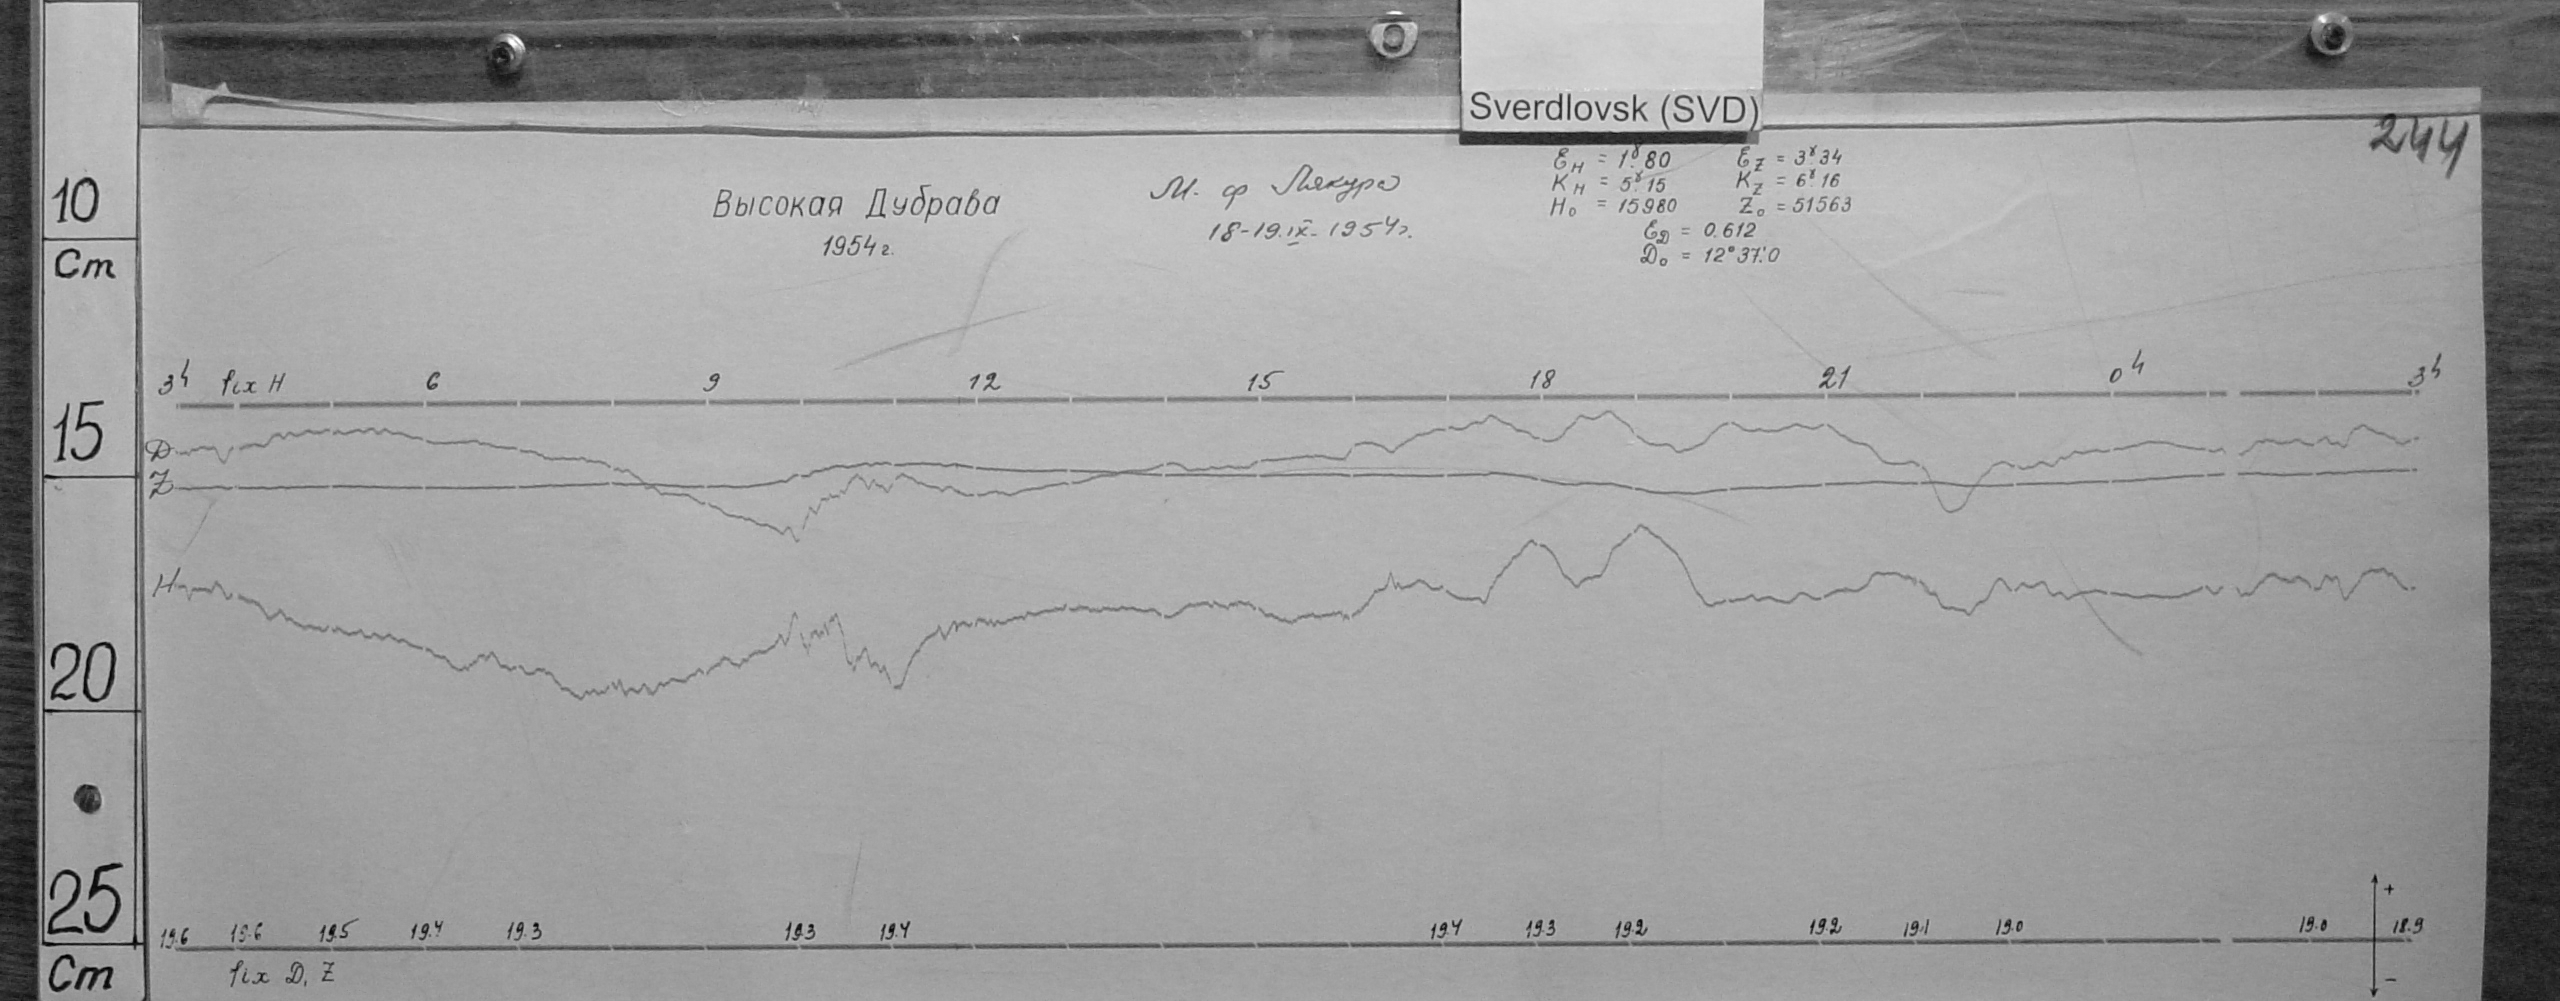 Sverdlovsk (SVD)
244
10
Cm
15
20
25
Cm
Высокая Дубрава
1954 г.
М. ф
18-19.IX-1954 г.
ℰH = 1.ˠ80 ℰZ = 3.ˠ34
KH = 5.ˠ15 KZ = 6.ˠ16
H₀ = 15980 Z₀ = 51563
ℰD = 0.612
D₀ = 12°37.'0
3h fix H 6 9 12 15 18 21 0h 3h
D
Z
H
19.6 19.6 19.5 19.4 19.3 19.3 19.4 19.4 19.3 19.2 19.2 19.1 19.0 19.0 18.9
fix D, Z
+
−